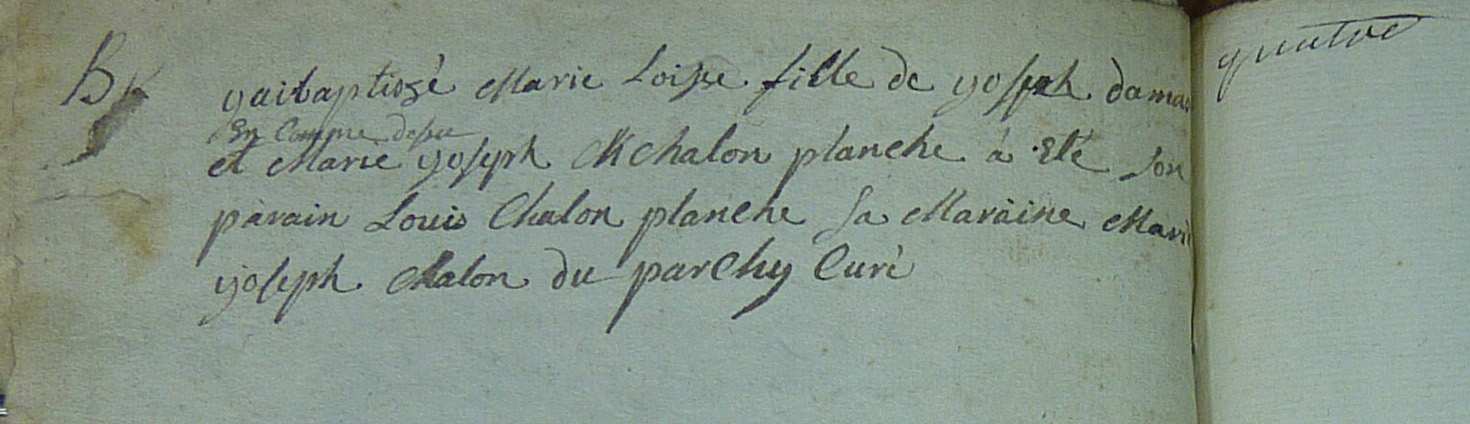 B
yaibaptisé Marie Loisse fille de yoseph damas
En Comme dessu
et Marie yoseph Chalon planche à eté son
parain Louis Chalon planche sa Maraine Marie
yoseph chalon du parchy Curé
quatre